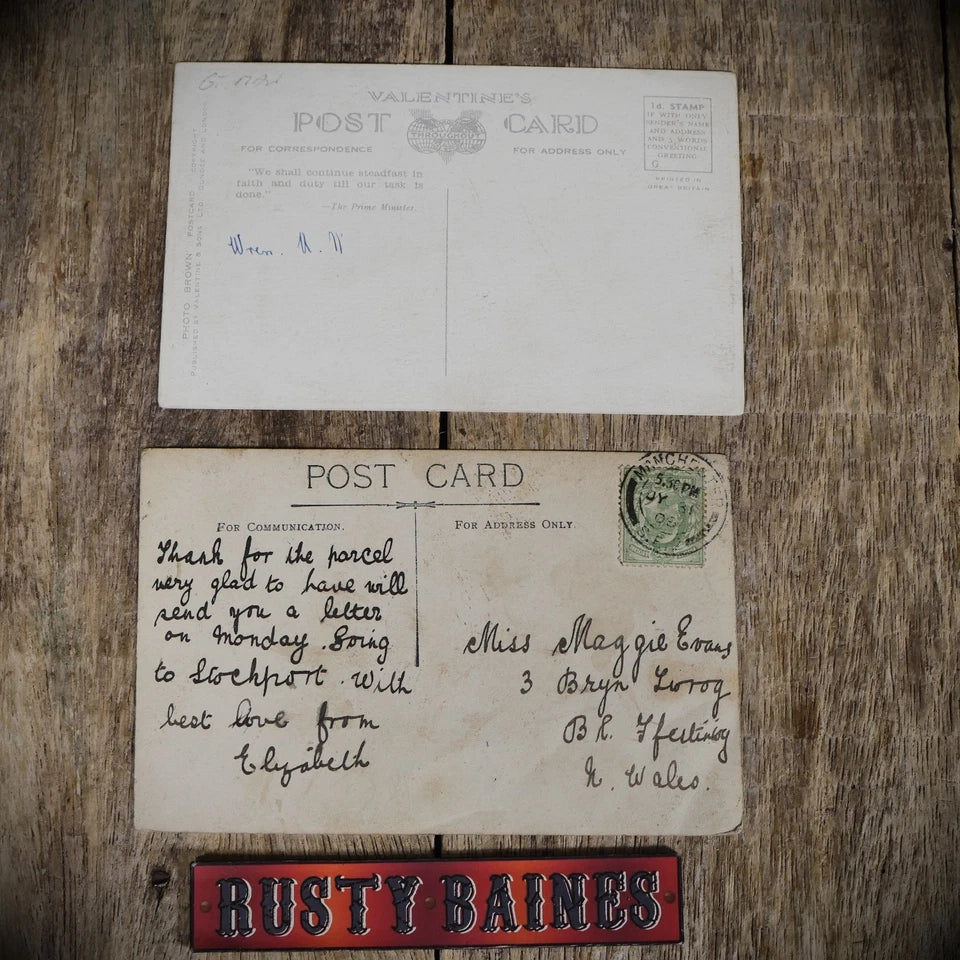 VALENTINE'S
POST CARD
THROUGHOUT
FOR CORRESPONDENCE
FOR ADDRESS ONLY
1d. STAMP
IF WITH ONLY
SENDER'S NAME
AND ADDRESS
AND 5 WORDS
CONVENTIONAL
GREETING
G
PRINTED IN
GREAT BRITAIN
"We shall continue steadfast in
faith and duty till our task is
done."
—The Prime Minister.
Wren.
PHOTO BROWN POSTCARD COPYRIGHT
PUBLISHED BY VALENTINE & SONS LTD. DUNDEE AND LONDON
POST CARD
FOR COMMUNICATION.
FOR ADDRESS ONLY.
5.30 PM
JY 31
Thank for the parcel
very glad to have will
send you a letter
on Monday. Going
to Stockport. With
best love from
Elizabeth
Miss Maggie Evans
3 Bryn Twrog
Bl. Ffestiniog
N. Wales.
RUSTY BAINES